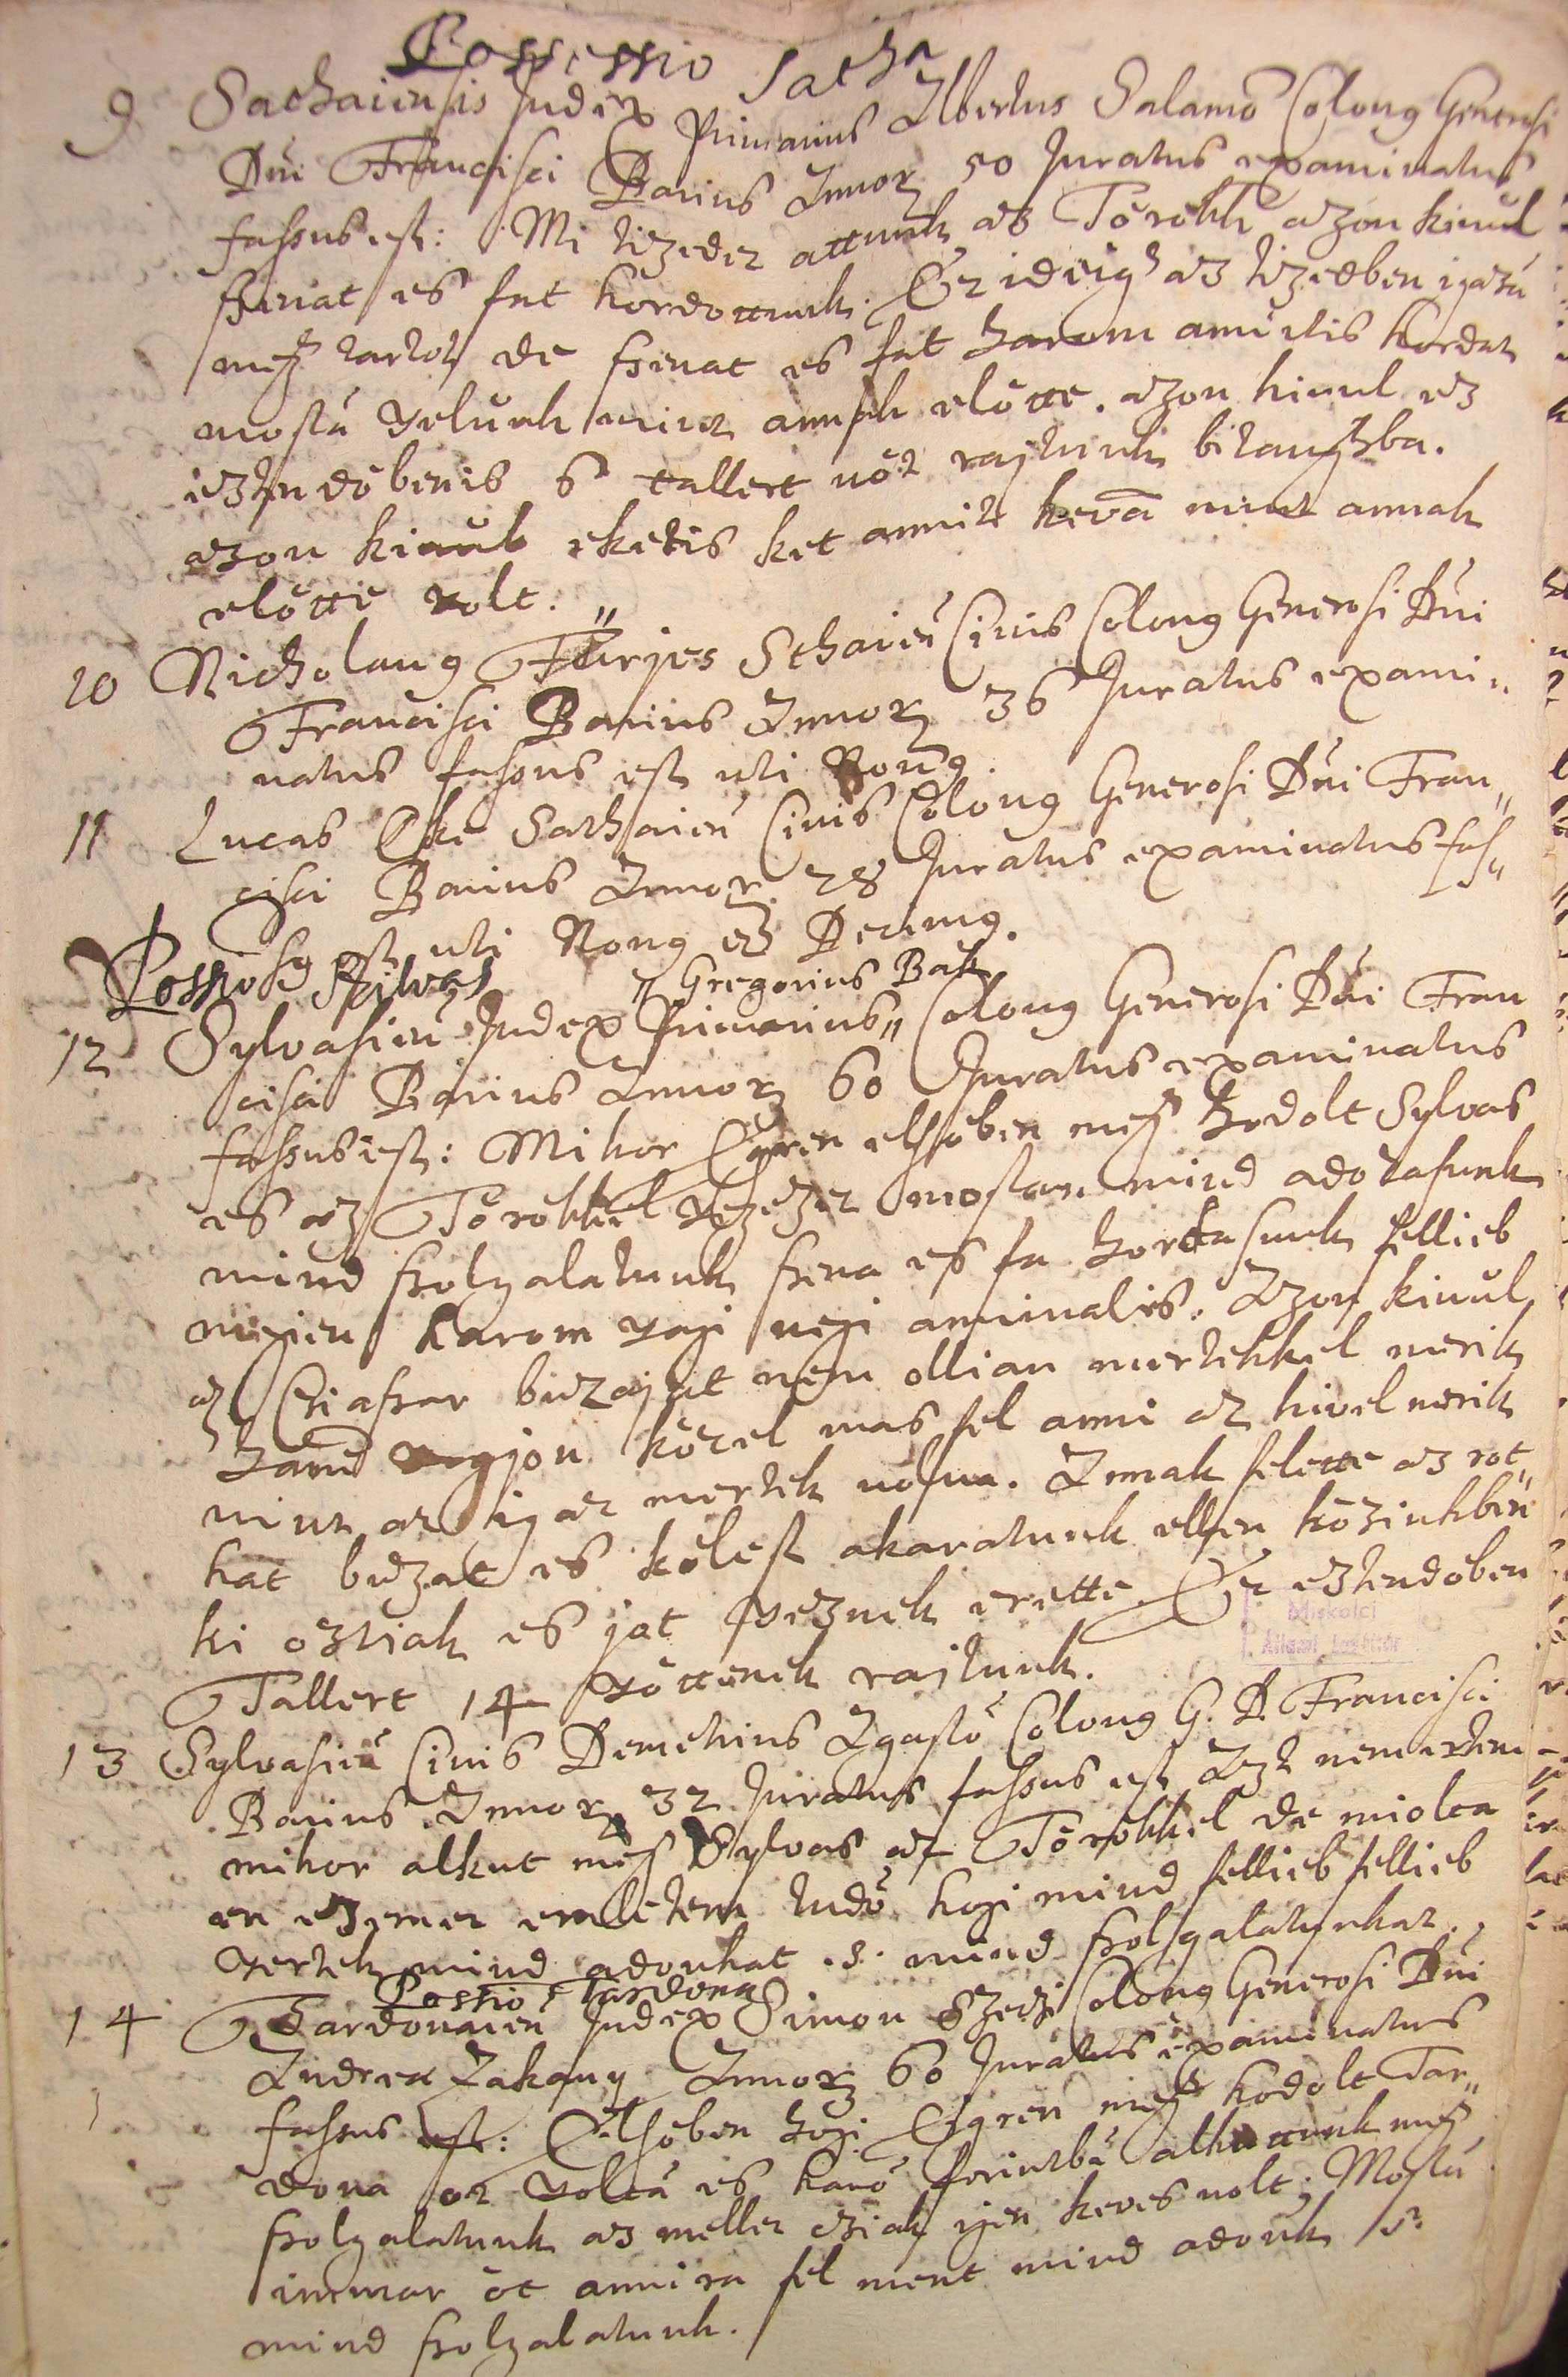 Possessio Satha
9 Sathaiensis Judex Primarius Albertus Salamo Colonq Generosi
Dni Francisci Barius Annorz 50 Juratus examinatus
fassus est: Mi tizedet attunk az Törökk azon kiuül
szenat es fat hordottunk. Ez ideigh az tizedben igazā
megh tartot de szenat es fat harom anniltis hordat
mostā velunk mint annak elötte. azon kiuul ez
esztendöbenis 6 tallert uöt rajtunk birsaghba.
azon kiuul eketis ket annit kevā mint annak
elötte volt.
10 Nicholaus Fürjes Sthaien Ciuis Colonq Generosi Dni
Francisci Barius Annorz 36 Juratus exami„
natus fassus est uti Nonq.
11 Lucas Eke Sathaien Ciuis Colonq Generosi Dni Fran„
cisci Barius Annor. 28 Juratus examinatus fas„
sus est uti Nonq et Decimq.
Possio Szilvas
„ Gregorius Bak
12 Sylvasien Judex Primarius„ Colonq Generosi Dni Fran
cisci Barius Annorz 60 Juratus examinatus
fassus est: Mikor Egren elsöben megh hodolt Sylvas
es az Törökkel vegezet mostan mind adozasunk
mind szolgalatunk szena es fa hordasunk fellieb
megien harom vagi negi anninalis. Azon kiuül
az Csiaszar buzajat nem ollian mertekkel merik
hanē nagjon közel mas fel anni az kivel merik
mint az igaz mertek uolna. Annak felette az rot„
hat buzat es kölest akaratunk ellen közinkben
ki osztiak es jot vesznek erette. Ez esztendöben
Tallert 14 vöttenek rajtunk.
13 Sylvasien Ciuis Demetrius Agasto Colonq G. D. Francisci
Barius Annorz 32 Juratus fassus est Azt nem ertem
mikor alkut megh Sylvas az Törökkel de miolta
en eszemet emlitem tudō hogi mind fellieb fellieb
vertek mind adonkat .s. mind szolgalatunkat.
Possio Tardona
14 Tardonaien Judex Simon Szedi Colonq Generosi Dni
Andrea Zakany Annorz 60 Juratus examinatus
fassus est: Elsöben hogi Egren megh hodolt Tar„
dona öt voltā es hanō forintbā alkuttunk megh
szolgalatunk az mellet csiak igen keves uolt; Mostā
immar öt annira fel ment mind adonk s.
mind szolgalatunk.
Miskolci
Állami Levéltár